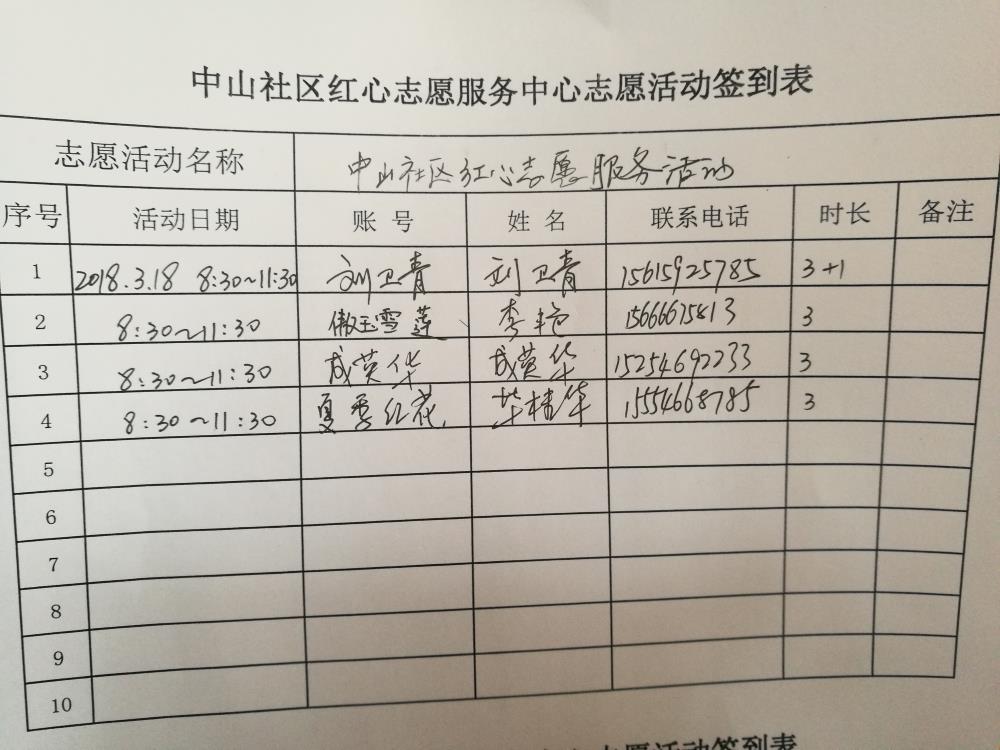 中山社区红心志愿服务中心志愿活动签到表
志愿活动名称 中山社区红心志愿服务活动
序号 活动日期 账号 姓名 联系电话 时长 备注
1 2018.3.18 8:30~11:30 刘卫青 刘卫青 15615925785 3+1
2 8:30~11:30 傲玉雪莲 李艳 15666675413 3
3 8:30~11:30 成英华 成英华 15254692233 3
4 8:30~11:30 夏季红花 毕桂华 15554668785 3
5
6
7
8
9
10
志愿活动签到表